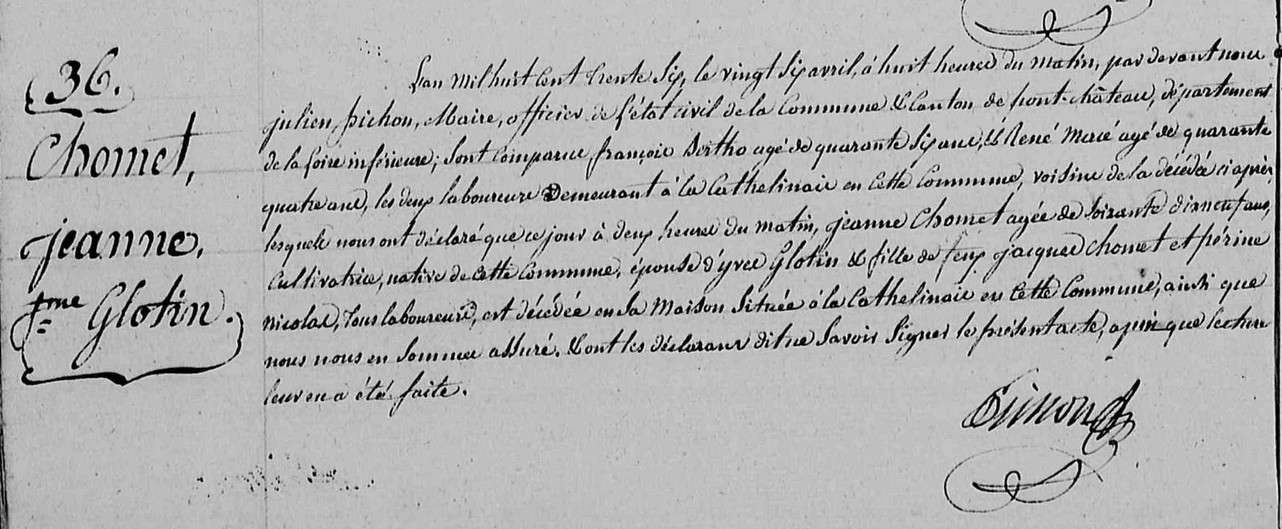 36.
Chomet,
jeanne,
fme Glotin.
L'an mil huit cent trente six, le vingt six avril, à huit heures du matin, par devant nous
julien, pichon, Maire, officier de l'état civil de la Commune & Canton de pont-château, département
de la loire inférieure; sont comparus françois Bertho agé de quarante six ans, & René Macé agé de quarante
quatre ans, les deux laboureurs demeurant à la Cathelinais en cette Commune, voisins de la décédée ci après,
lesquels nous ont déclaré que ce jour à deux heures du matin, jeanne Chomet agée de soixante dixneuf ans,
Cultivatrice, native de cette Commune, épouse d'yves Glotin & fille de feux jacques chomet et périne
nicolas, tous laboureurs, est décédée en sa Maison située à la Cathelinais en cette Commune, ainsi que
nous nous en sommes assuré. & ont les déclarans dit ne savoir signer le présent acte, après que lecture
leur en a été faite.